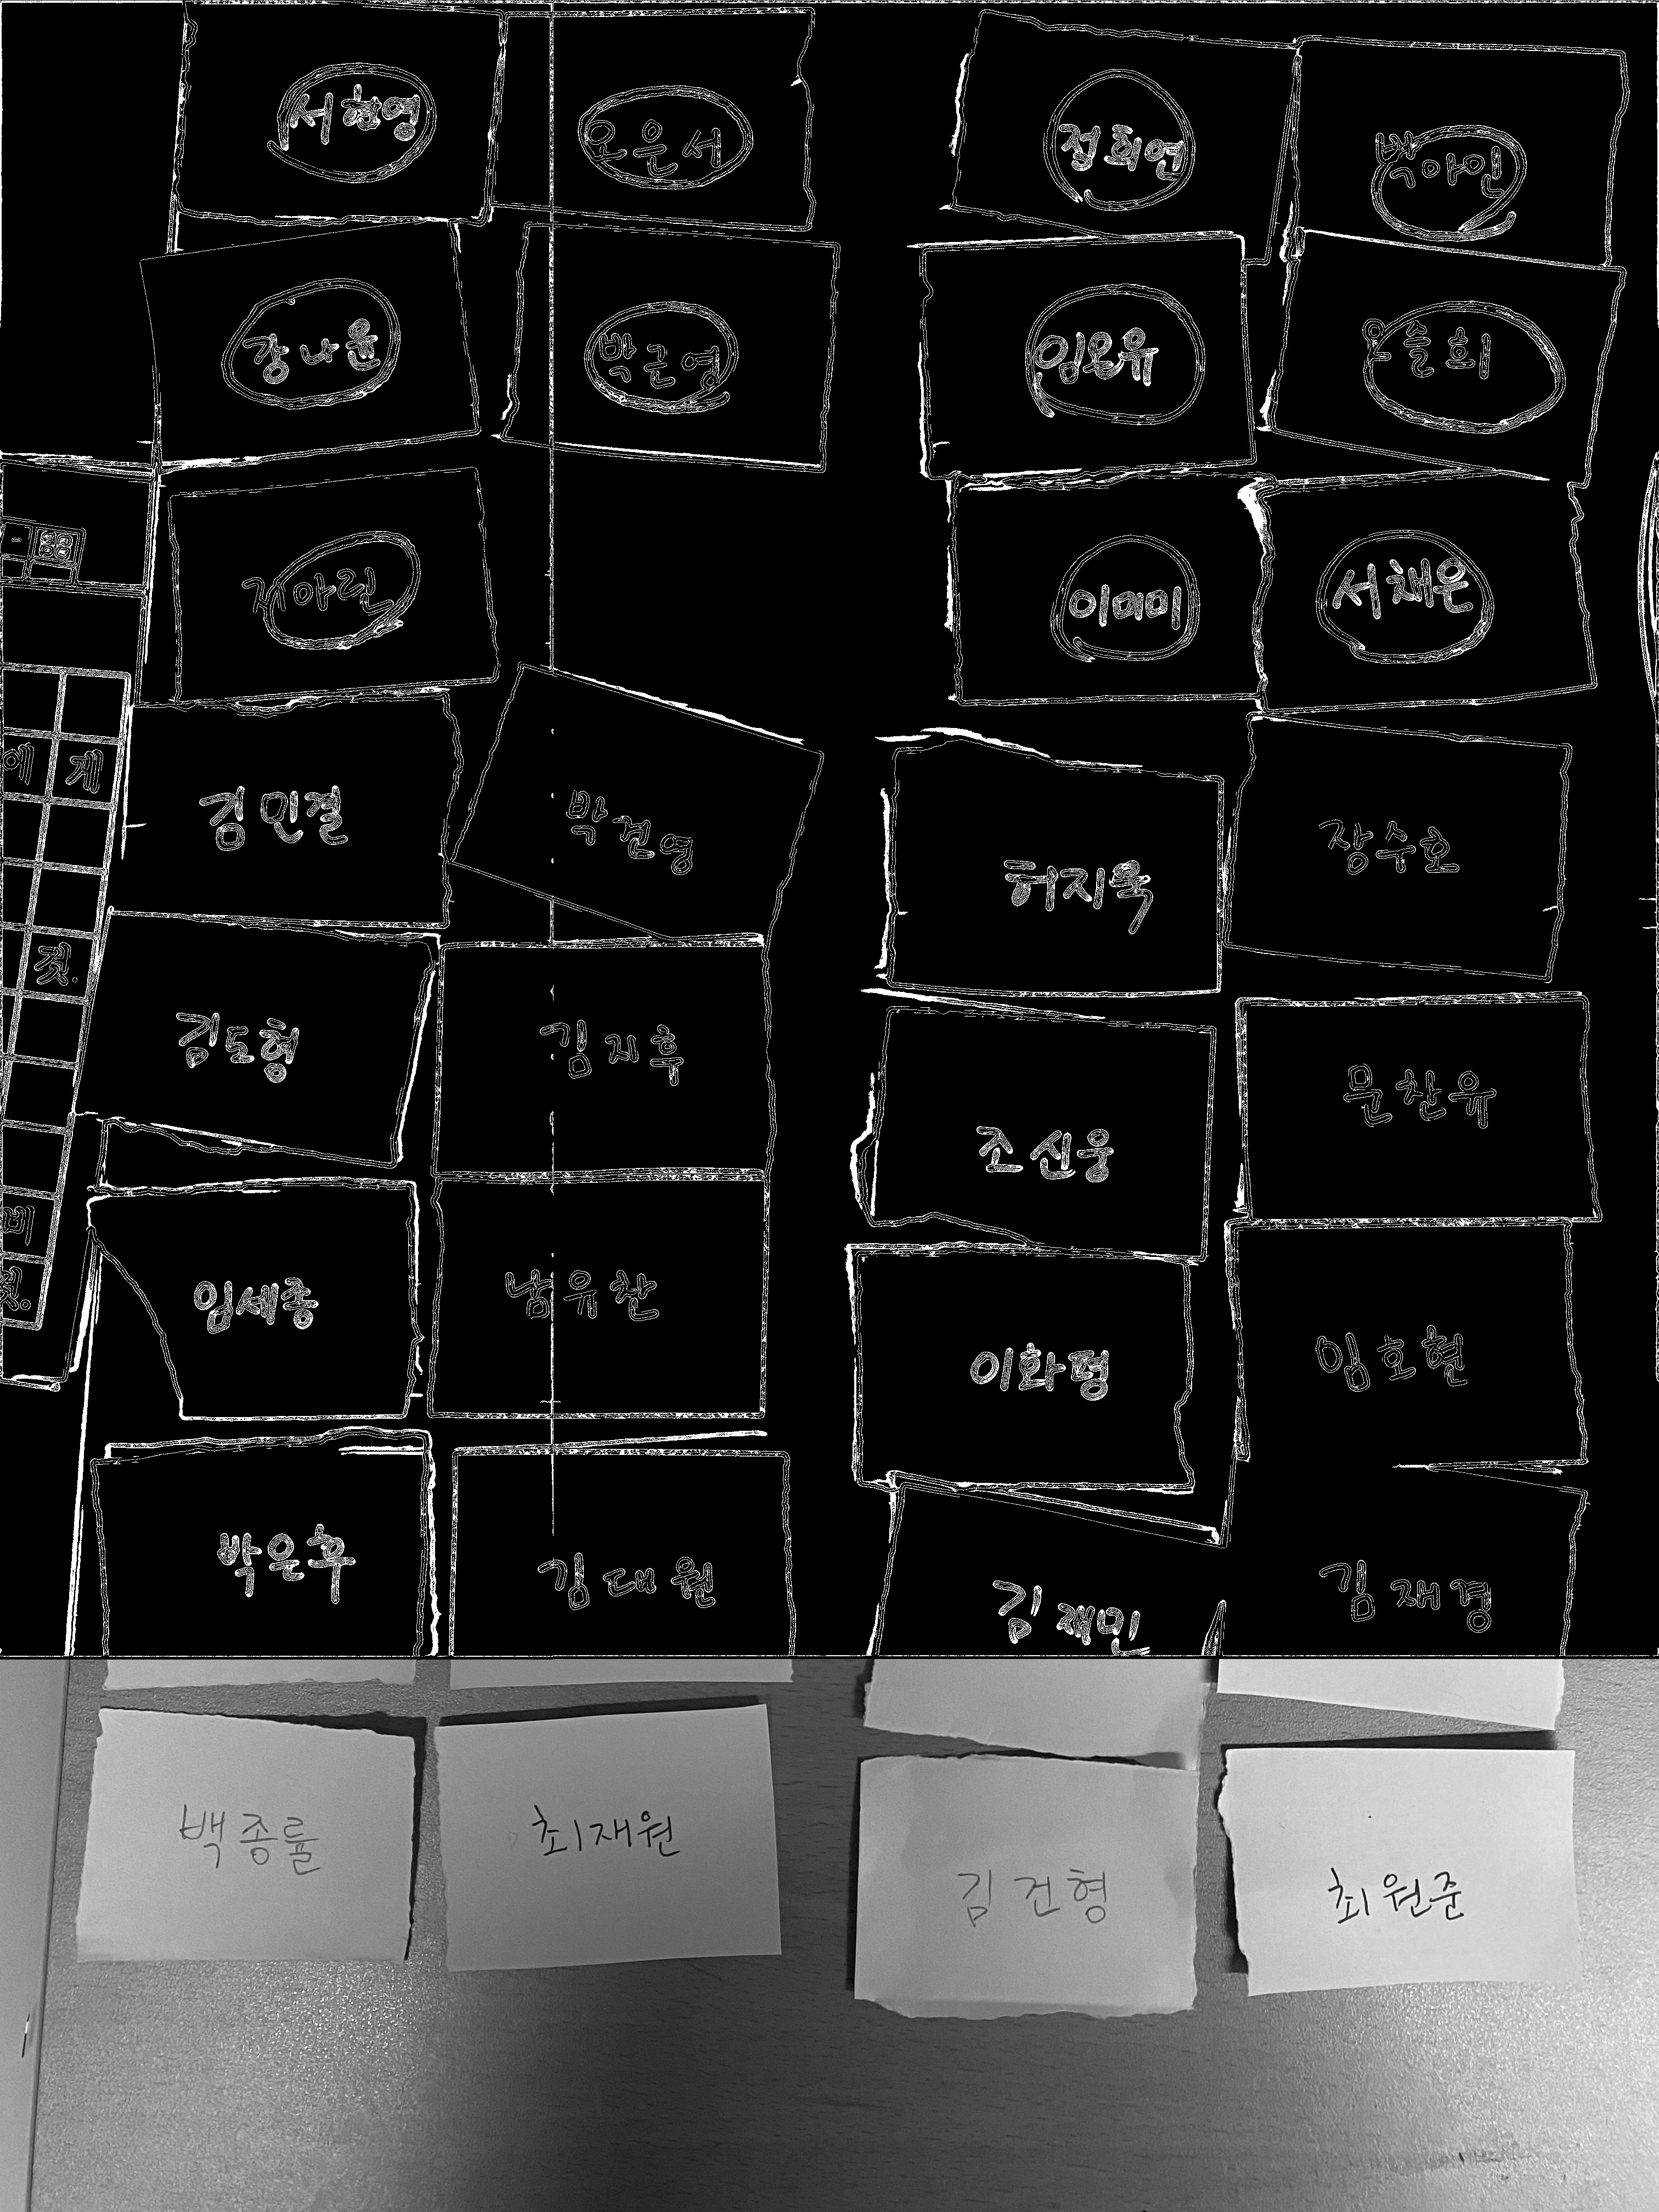 서현영 오은서 정희연 박아인
강나윤 박근영 임윤유 오슬희
제아린 이예미 서채은
김민결 박건영 허지욱 장수호
에 게
김도형 김지후 조신웅 문찬유
것.
임세종 남유찬 이화평 임호현
비
것.
박은후 김대원 김재민 김재경
백종률 최재원 김건형 최원준